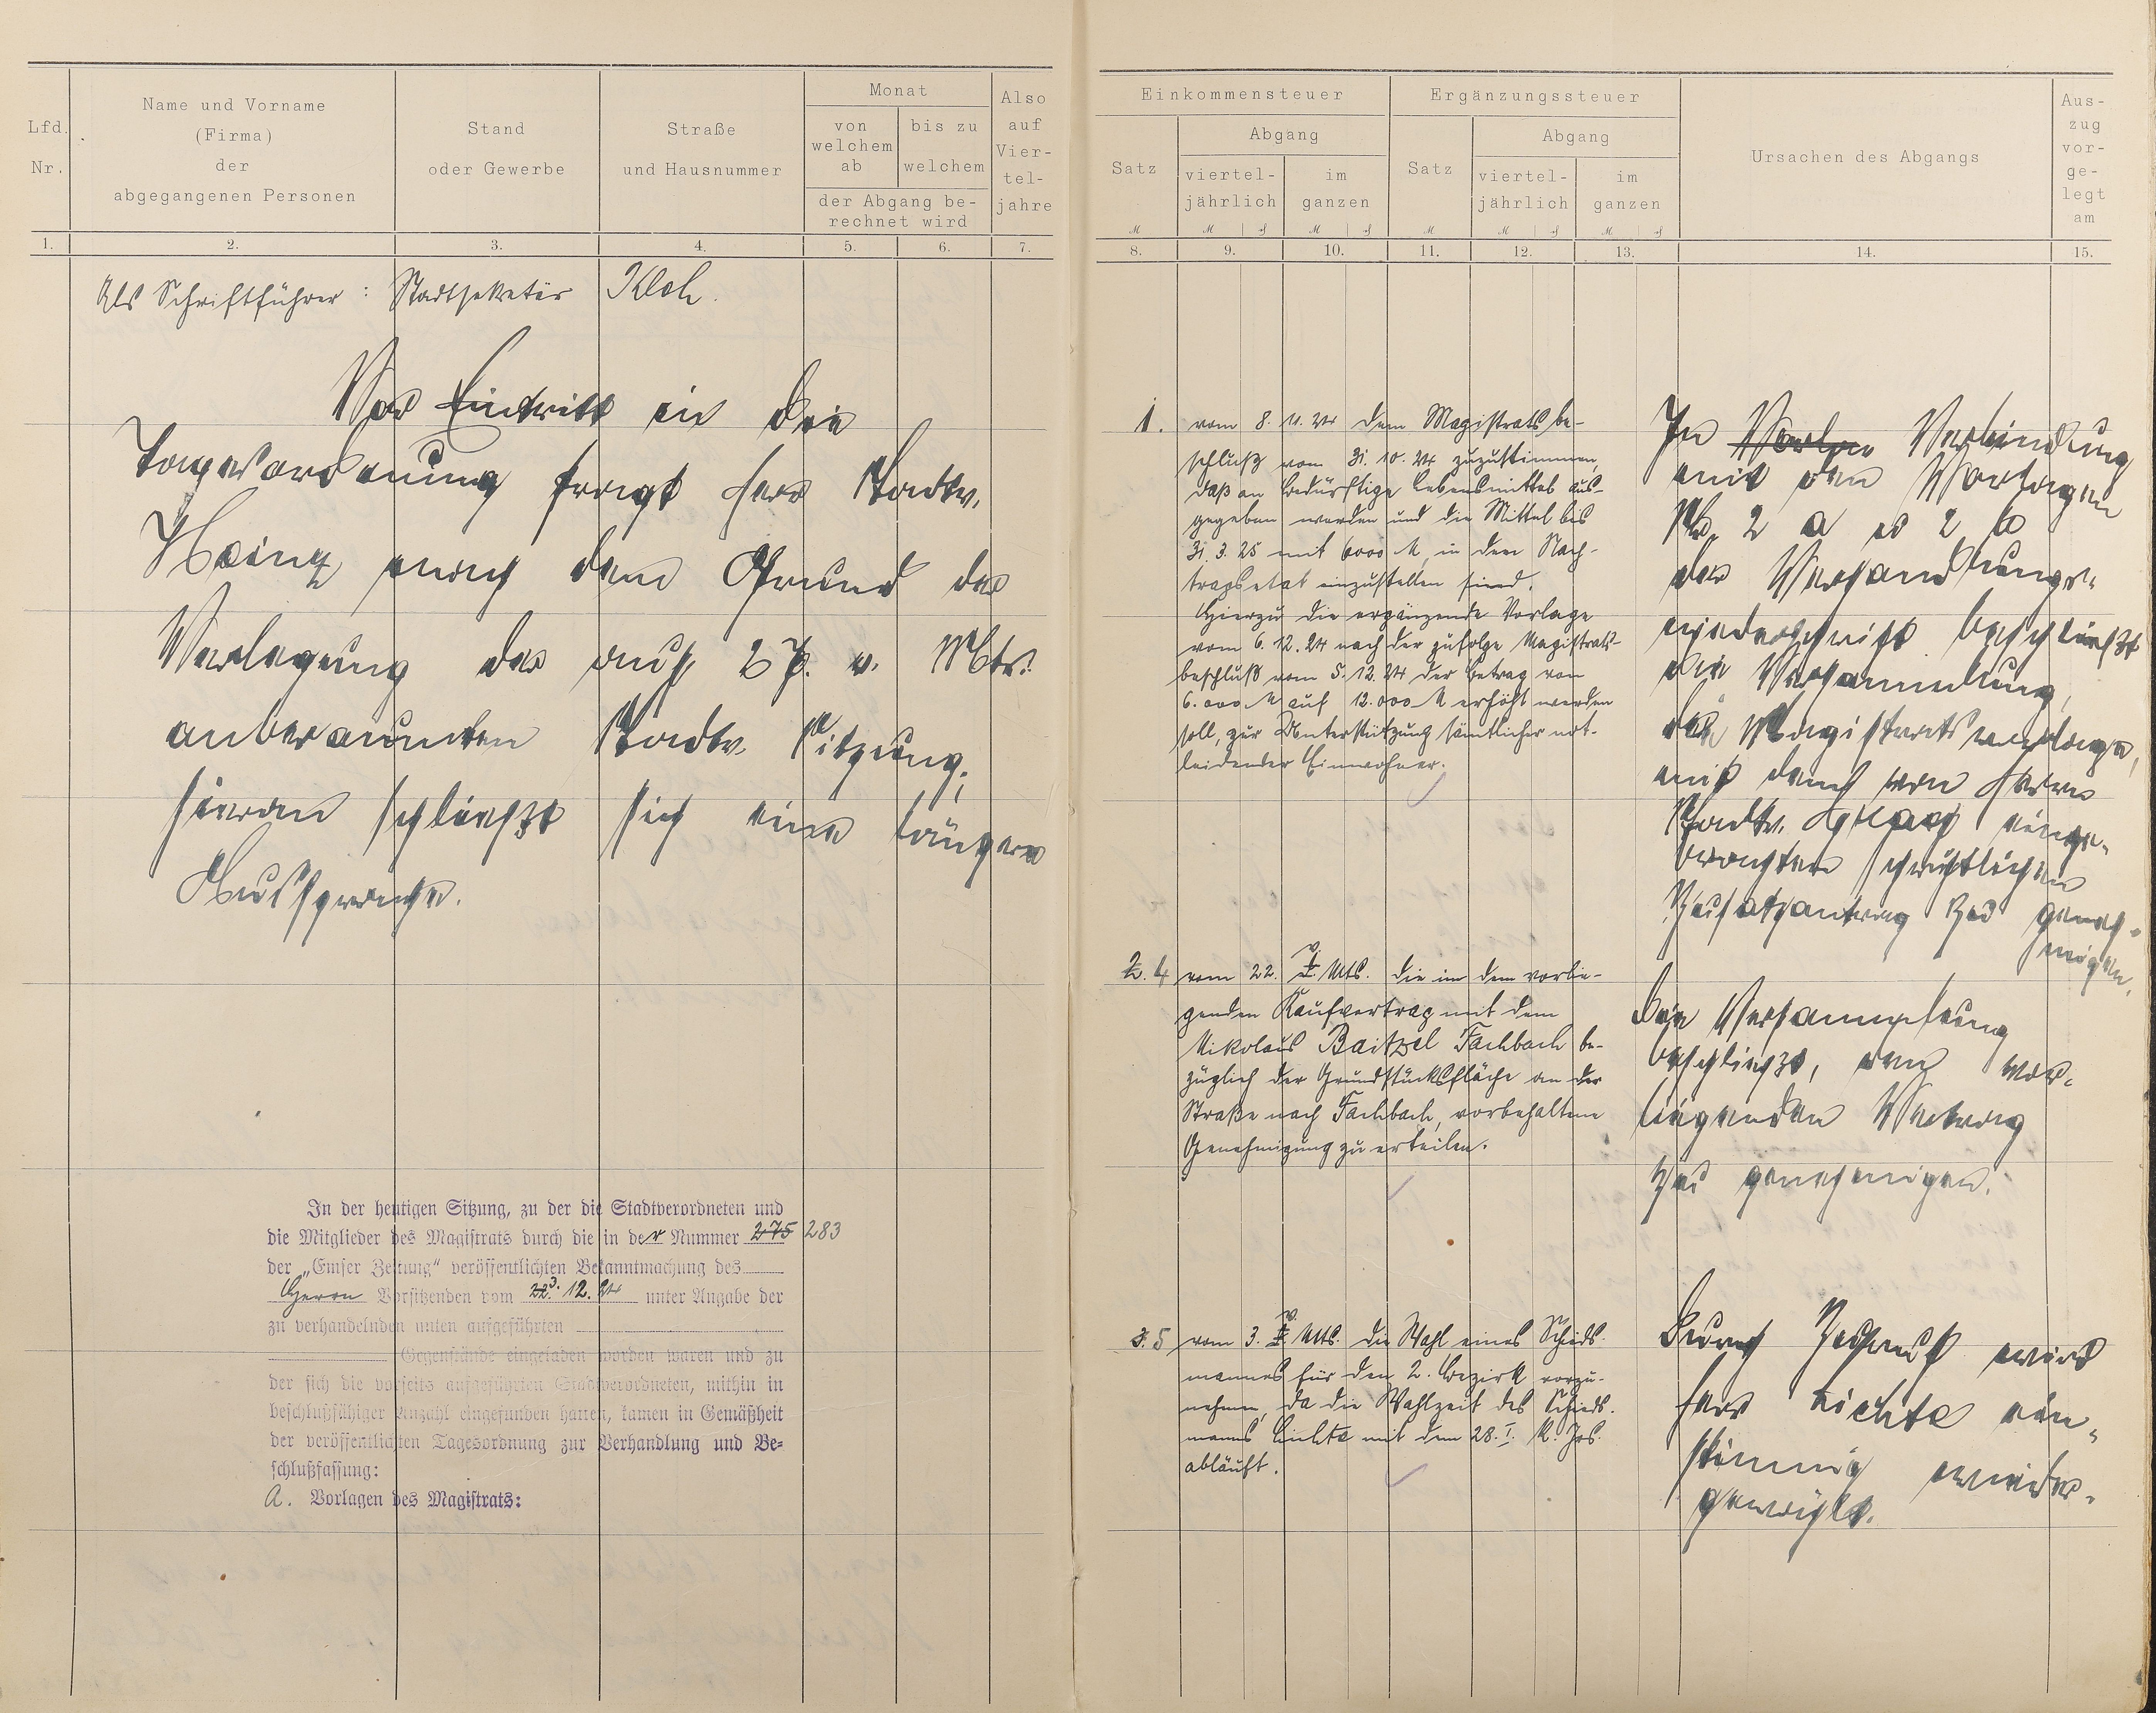 Lfd. Nr.
Name und Vorname
(Firma)
der
abgegangenen Personen
Stand
oder Gewerbe
Straße
und Hausnummer
Monat
von welchem ab
bis zu welchem
der Abgang be-
rechnet wird
Also
auf
Vier-
tel-
jahre
1. 2. 3. 4. 5. 6. 7.
Als Schriftführer: Stadtsekretär Kloh.
Vor Eintritt in die
Tagesordnung fragt Herr Stadtv.
Heinz nach dem Grund der
Verlegung der auf 27. v. Mts.
anberaumten Stadtv. Sitzung;
hieran schließt sich eine längere
Aussprache.
In der heutigen Sitzung, zu der die Stadtverordneten und
die Mitglieder des Magistrats durch die in der Nummer 275 283
der „Emser Zeitung" veröffentlichten Bekanntmachung des
Herrn Vorsitzenden vom 3. 12. 24 unter Angabe der
zu verhandelnden unten aufgeführten
Gegenstände eingeladen worden waren und zu
der sich die vorseits aufgeführten Stadtverordneten, mithin in
beschlußfähiger Anzahl eingefunden hatten, kamen in Gemäßheit
der veröffentlichten Tagesordnung zur Verhandlung und Be-
schlußfassung:
A. Vorlagen des Magistrats:
Einkommensteuer
Satz
Abgang
viertel-
jährlich
im
ganzen
Ergänzungssteuer
Satz
Abgang
viertel-
jährlich
im
ganzen
Ursachen des Abgangs
Aus-
zug
vor-
ge-
legt
am
8. 9. 10. 11. 12. 13. 14. 15.
1. vom 8. 11. 24 dem Magistratsbe-
schluß vom 31. 10. 24 zuzustimmen,
daß an Bedürftige Lebensmittel aus-
gegeben werden und die Mittel bis
31. 3. 25 mit 6000 M in den Nach-
tragsetat einzustellen sind.
Hierzu die ergänzende Vorlage
vom 6. 12. 24 nach der zufolge Magistrats-
beschluß vom 5. 12. 24 der Betrag von
6.000 M auf 12.000 M erhöht werden
soll, zur Unterstützung sämtlicher not-
leidender Einwohner.
In Verbindung
mit den Vorlagen
No. 2 a u 2 b
der Verhandlungs-
niederschrift beschließt
die Versammlung,
die Magistratsvorlage,
mit dem von Herrn
Stadtv. einge-
brachten schriftlichen
Zusatzantrag zu geneh-
migen.
2. 4 vom 22. v. Mts. die in dem vorlie-
genden Kaufvertrag mit dem
Nikolaus Baitzel Fachbach be-
züglich der Grundstücksfläche an der
Straße nach Fachbach, vorbehaltene
Genehmigung zu erteilen.
Die Versammlung
beschließt, den vor-
liegenden Vertrag
zu genehmigen.
3. 5 vom 3. v. Mts. die Wahl eines Schieds-
mannes für den 2. Bezirk vorzu-
nehmen, da die Wahlzeit des Schieds-
manns Lichte mit dem 28. I. k. Jrs.
abläuft.
Durch Zuruf wird
Herr Lichte ein-
stimmig wieder-
gewählt.